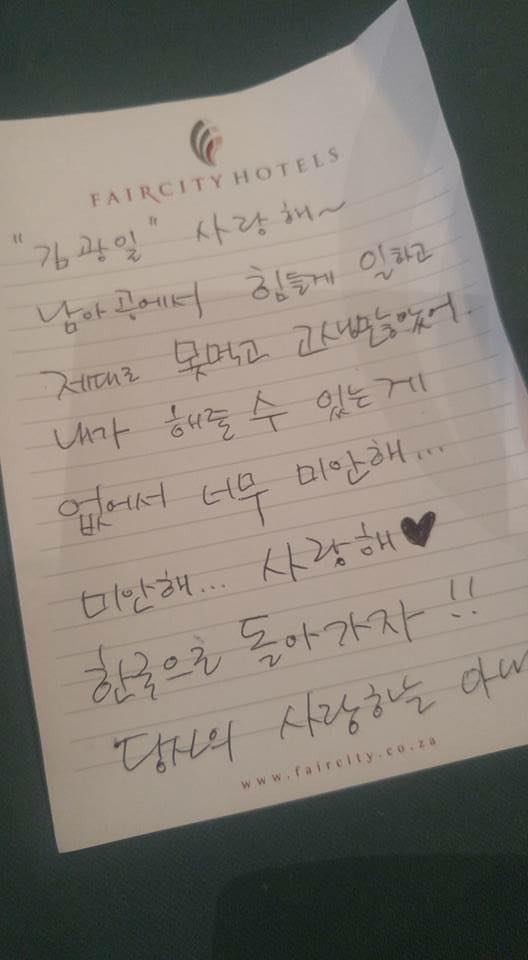 FAIRCITY HOTELS
"김광일" 사랑해~
남아공에서 힘들게 일하고
제대로 못먹고 고생많았어.
내가 해줄 수 있는게
없어서 너무 미안해...
미안해... 사랑해♥
한국으로 돌아가자!!
당신의 사랑하는
www.faircity.co.za